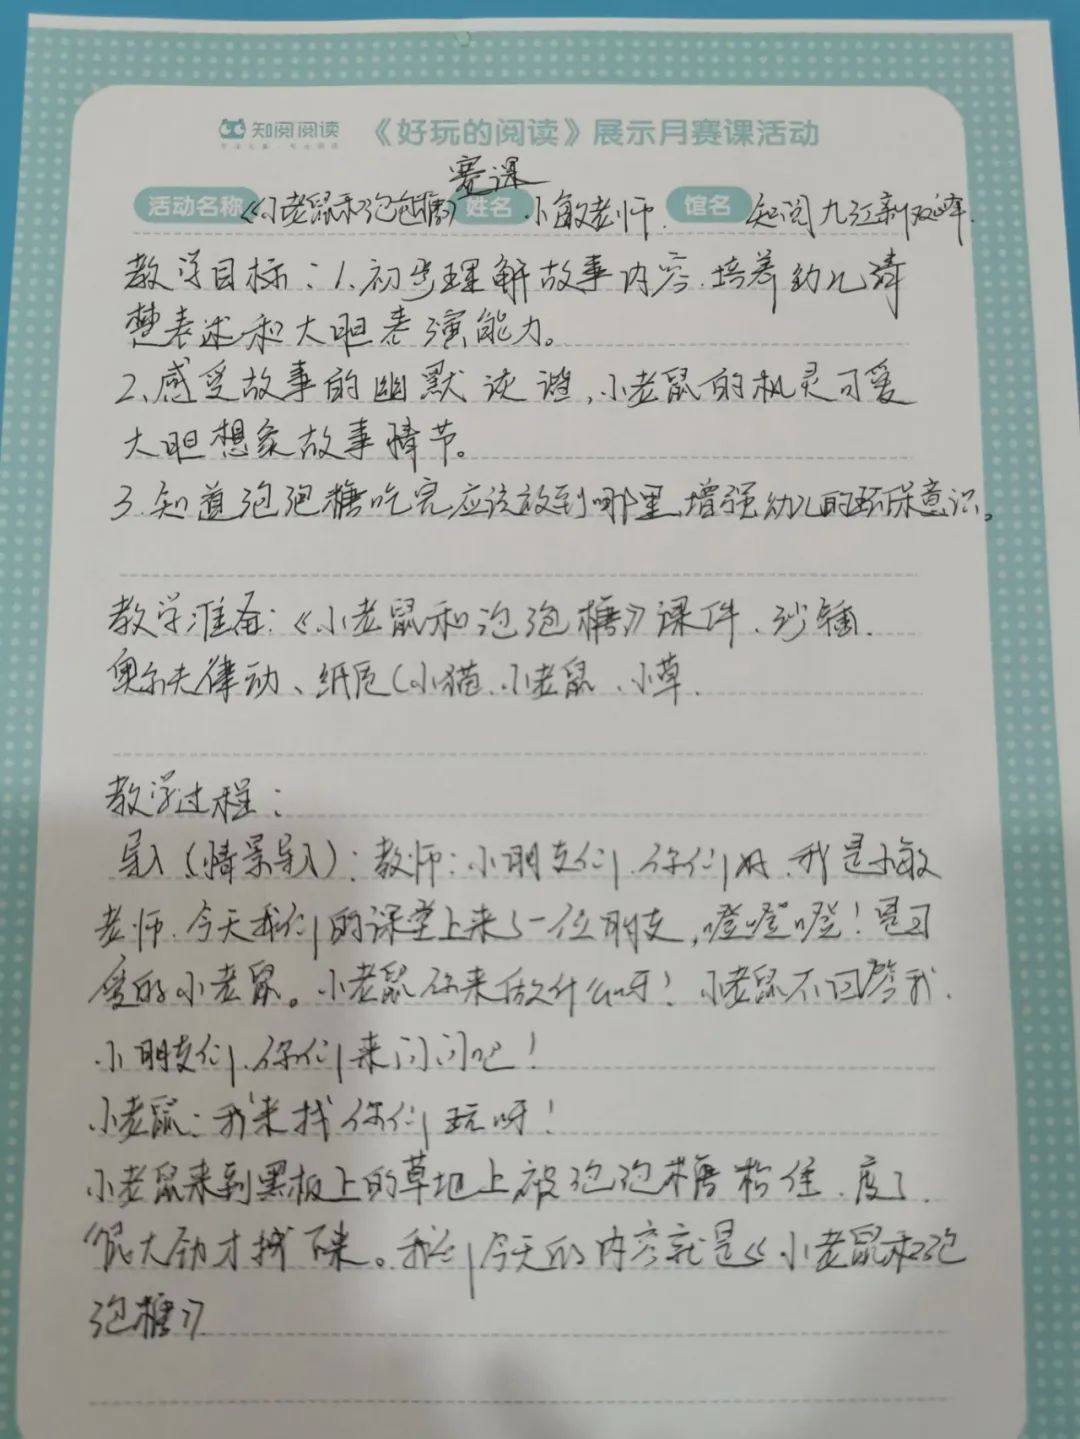 知阅阅读 《好玩的阅读》展示月赛课活动
赛课
活动名称 《小老鼠和泡泡糖》 姓名 小敏老师. 馆名 知阅九江新双峰.
教学目标：1.初步理解故事内容.培养幼儿清
楚表述和大胆表演能力。
2、感受故事的幽默诙谐,小老鼠的机灵可爱
大胆想象故事情节。
3.知道泡泡糖吃完应该放到哪里,增强幼儿的环保意识。
教学准备:《小老鼠和泡泡糖》课件、沙锤.
奥尔夫律动、纸卮(小猫.小老鼠、小草.
教学过程：
导入(情景导入)：教师：小朋友们,你们好.我是小敏
老师.今天我们的课堂上来了一位朋友,噔噔噔！是可
爱的小老鼠。小老鼠你来做什么呀？小老鼠不回答我.
小朋友们,你们来问问吧！
小老鼠：我来找你们玩呀！
小老鼠来到黑板上的草地上被泡泡糖粘住.废了
很大劲才揪下来。我们今天的内容就是《小老鼠和泡
泡糖》